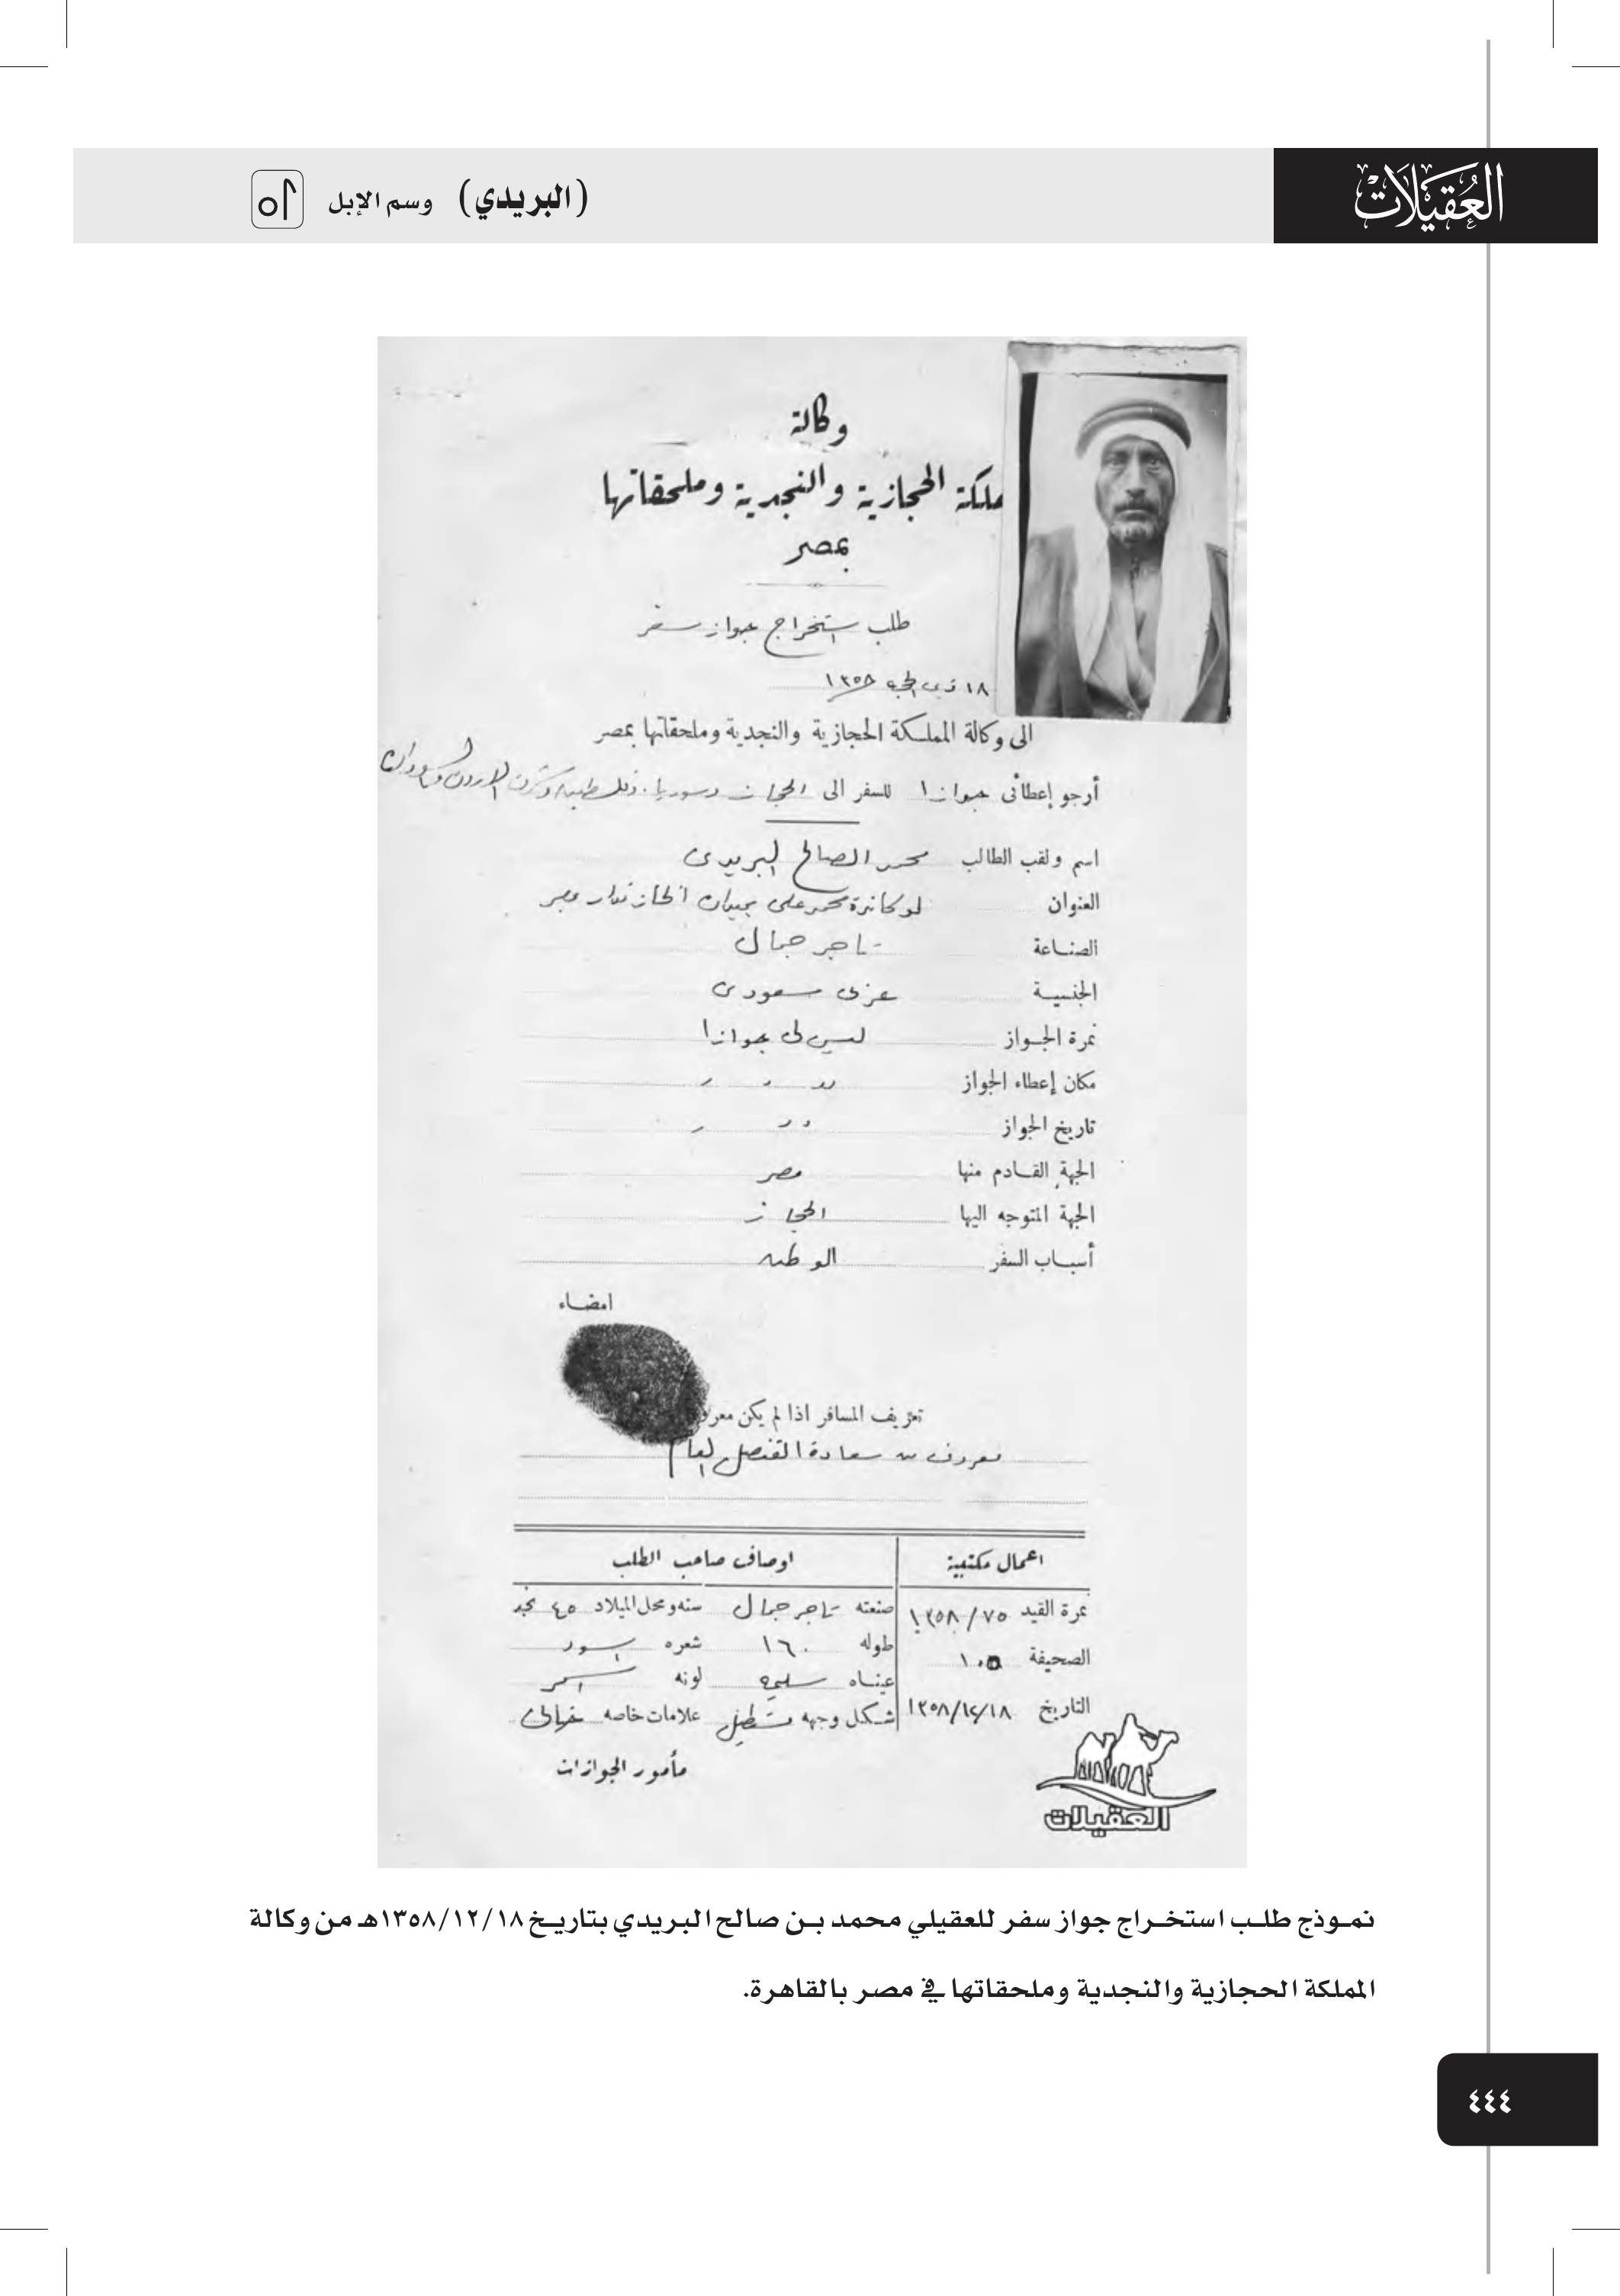 العُقَيْلَاتْ
(البريدي) وسم الإبل
وكالة
ملكة الحجازية والنجدية وملحقاتها
بمصر
طلب استخراج جواز سفر
١٨ ذي الحجة ١٣٥٨
الى وكالة المملكة الحجازية والنجدية وملحقاتها بمصر
أرجو إعطائى جوازا للسفر الى الحجاز وسوريا وفلسطين وشرق الاردن والسودان
اسم ولقب الطالب محمد الصالح البريدى
العنوان لوكاندة محمد على بميدان الخازندار مصر
الصناعة تاجر جمال
الجنسية عربى سعودى
نمرة الجواز ليس لى جوازا
مكان إعطاء الجواز
تاريخ الجواز
الجهة القادم منها مصر
الجهة المتوجه اليها الحجاز
أسباب السفر الوطن
امضاء
تعريف المسافر اذا لم يكن معرو
معروف من سعادة القنصل العام
اعمال مكتبية
نمرة القيد ٧٥/١٣٥٨
الصحيفة
التاريخ ١٨/١٢/١٣٥٨
اوصاف صاحب الطلب
صنعته تاجر جمال سنه ومحل الميلاد ٤٥ نجد
طوله ١٦٠ شعره اسود
عيناه لونه اسمر
شكل وجهه مستطيل علامات خاصه خالى
مأمور الجوازات
العقيلات
نموذج طلب استخراج جواز سفر للعقيلي محمد بن صالح البريدي بتاريخ ١٣٥٨/١٢/١٨هـ من وكالة
المملكة الحجازية والنجدية وملحقاتها في مصر بالقاهرة.
٤٤٤